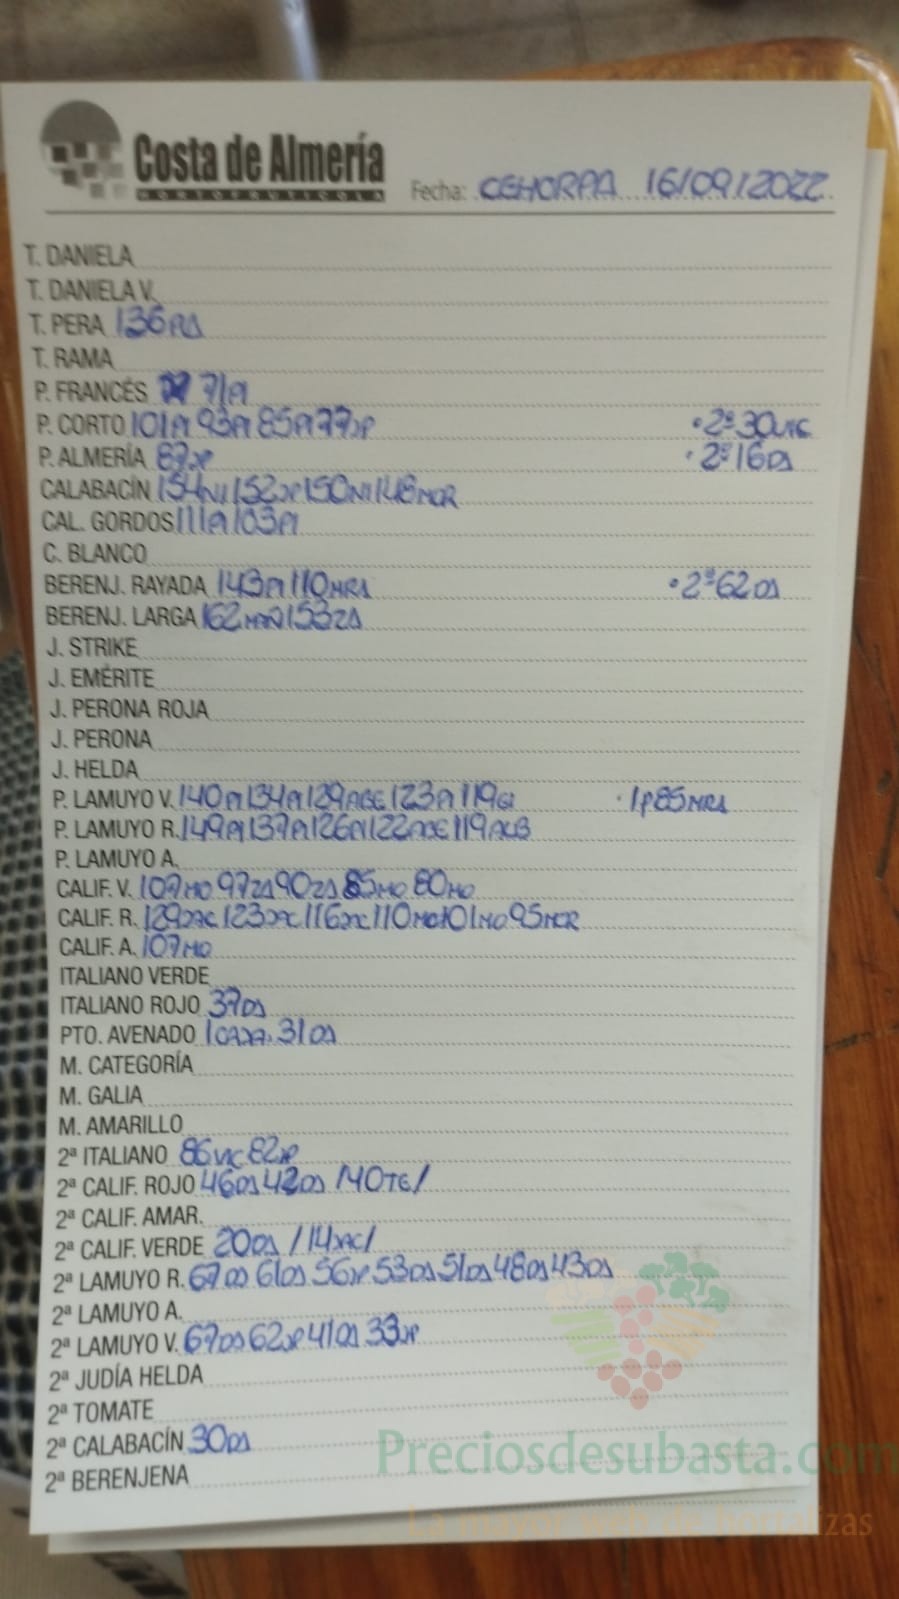 Costa de Almería
HORTOFRUTICOLA
Fecha: CEHORPA 16/09/2022
T. DANIELA
T. DANIELA V.
T. PERA 136
T. RAMA
P. FRANCÉS 71PI
P. CORTO 101PI 93PI 85PI 77JP • 2ª 30
P. ALMERÍA 87JP • 2ª 16DS
CALABACÍN 154NI 152JP 150NI 148MCR
CAL. GORDOS 111PI 103PI
C. BLANCO
BERENJ. RAYADA 143PI 110MRS • 2ª 62DS
BERENJ. LARGA 162 153ZS
J. STRIKE
J. EMÉRITE
J. PERONA ROJA
J. PERONA
J. HELDA
P. LAMUYO V. 140PI 134PI 129AGE 123PI 119GI • 1p 85MRS
P. LAMUYO R. 149PI 137PI 126PI 122AGE 119
P. LAMUYO A.
CALIF. V. 107MO 97ZS 90ZS 85MO 80MO
CALIF. R. 129JAC 123JAC 116JAC 110MO 101MO 95MCR
CALIF. A. 107MO
ITALIANO VERDE
ITALIANO ROJO 37DS
PTO. AVENADO 31DS
M. CATEGORÍA
M. GALIA
M. AMARILLO
2ª ITALIANO 86VIC 82JP
2ª CALIF. ROJO 46DS 42DS /40TE/
2ª CALIF. AMAR.
2ª CALIF. VERDE 20DS /14JAC/
2ª LAMUYO R. 67DS 61DS 56JP 53DS 51DS 48DS 43DS
2ª LAMUYO A.
2ª LAMUYO V. 67DS 62JP 41DS 33JP
2ª JUDÍA HELDA
2ª TOMATE
2ª CALABACÍN 30DS
2ª BERENJENA
Preciosdesubasta.com
La mayor web de hortalizas